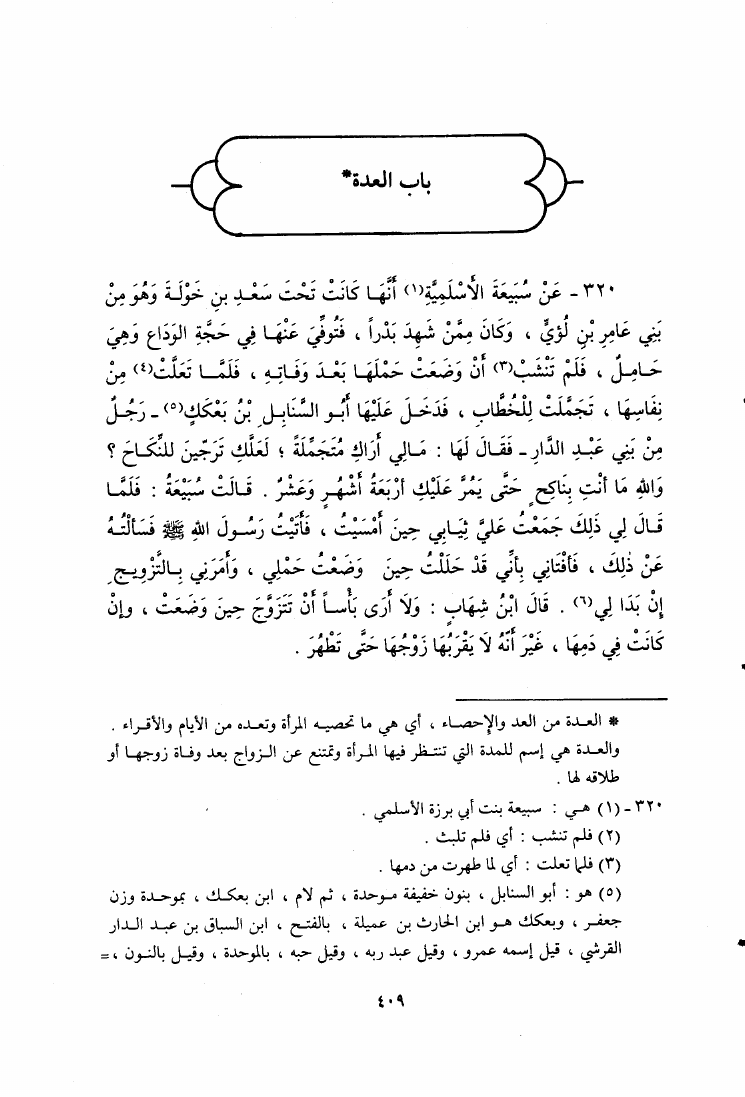 باب العدة*
٣٢٠ - عَنْ سُبَيعَةَ الأَسْلَمِيَّةِ(١) أَنَّهَا كَانَتْ تَحْتَ سَعْدِ بنِ خَوْلَةَ وَهُوَ مِنْ
بَنِي عَامِرِ بْنِ لُؤيٍّ ، وَكَانَ مِمَّنْ شَهِدَ بَدْراً ، فَتُوفِّيَ عَنْهَا فِي حَجَّةِ الوَدَاعِ وَهِيَ
حَامِلٌ ، فَلَمْ تَنْشَبْ(٣) أَنْ وَضَعَتْ حَمْلَهَا بَعْدَ وَفَاتِهِ ، فَلَمَّا تَعَلَّتْ(٤) مِنْ
نِفَاسِهَا ، تَجَمَّلَتْ لِلْخُطَّابِ ، فَدَخَلَ عَلَيْهَا أَبُو السَّنَابِلِ بْنُ بَعْكَكٍ(٥) - رَجُلٌ
مِنْ بَنِي عَبْدِ الدَّارِ - فَقَالَ لَهَا : مَالِي أَرَاكِ مُتَجَمِّلَةً ؛ لَعَلَّكِ تَرَجِّينَ للنِّكَاحَ ؟
وَاللهِ مَا أنْتِ بِنَاكِحٍ حَتَّى يَمُرَّ عَلَيْكِ أرْبَعَةُ أَشْهُرٍ وَعَشْرٌ . قَالَتْ سُبَيْعَةُ : فَلَمَّا
قَالَ لِي ذَلِكَ جَمَعْتُ عَلَيَّ ثِيَابِي حِينَ أَمْسَيْتُ ، فَأتَيْتُ رَسُولَ اللهِ ﷺ فَسَألْتُهُ
عَنْ ذٰلِكَ ، فَأفْتَانِي بِأنِّي قَدْ حَلَلْتُ حِينَ وَضَعْتُ حَمْلِي ، وَأمَرَنِي بِالتَّزْوِيجِ
إِنْ بَدَا لِي(٦) . قَالَ ابْنُ شِهَابٍ : وَلَا أَرَى بَأْساً أَنْ تَتَزَوَّجَ حِينَ وَضَعَتْ ، وإنْ
كَانَتْ فِي دَمِهَا ، غَيْرَ أَنَّهُ لَا يَقْرَبُهَا زَوْجُهَا حَتَّى تَطْهُرَ .
* العدة من العد والإحصاء ، أي هي ما تحصيه المرأة وتعده من الأيام والأقراء .
والعدة هي إسم للمدة التي تنتظر فيها المرأة وتمتنع عن الزواج بعد وفاة زوجها أو
طلاقه لها .
٣٢٠ - (١) هي : سبيعة بنت أبي برزة الأسلمي .
(٢) فلم تنشب : أي فلم تلبث .
(٣) فلما تعلت : أي لما طهرت من دمها .
(٥) هو : أبو السنابل ، بنون خفيفة موحدة ، ثم لام ، ابن بعكك ، بموحدة وزن
جعفر ، وبعكك هو ابن الحارث بن عميلة ، بالفتح ، ابن السباق بن عبد الدار
القرشي ، قيل إسمه عمرو ، وقيل عبد ربه ، وقيل حبه ، بالموحدة ، وقيل بالنون ، =
٤٠٩